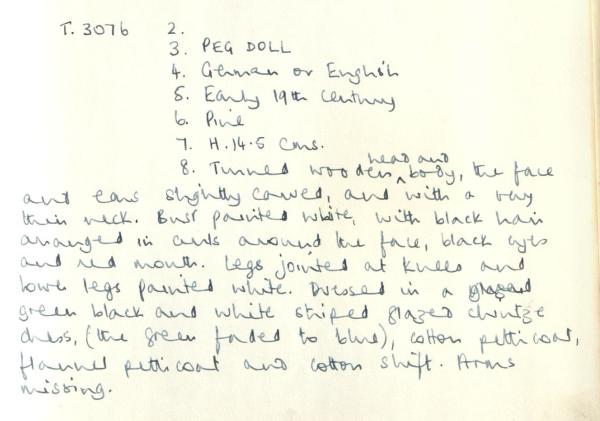 T. 3076 2.
3. PEG DOLL
4. German or English
5. Early 19th century
6. Pine
7. H. 14.5 cms.
8. Turned wooden head and body, the face
and ears slightly carved, and with a very
thin neck. Bust painted white, with black hair
arranged in curls around the face, black eyes
and red mouth. Legs jointed at knees and
lower legs painted white. Dressed in a
green black and white striped glazed chintze
dress, (the green faded to blue), cotton petticoat,
flannel petticoat and cotton shift. Arms
missing.